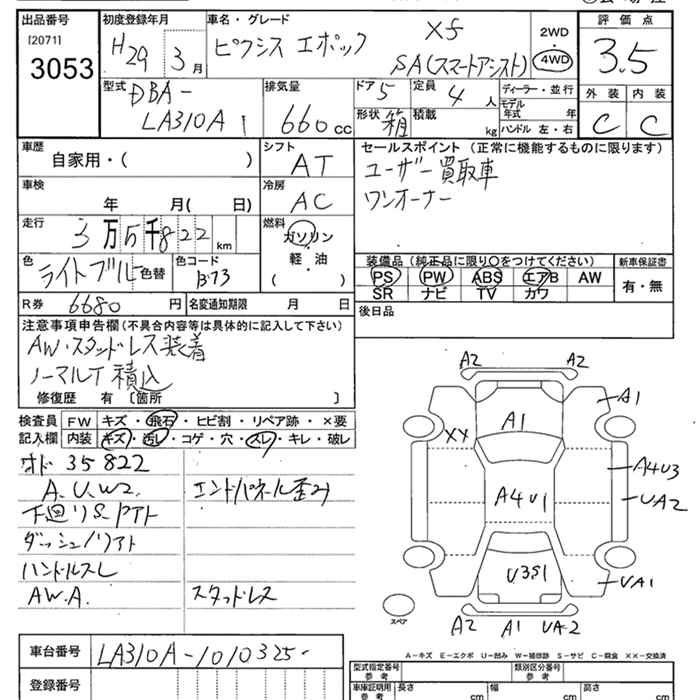 出品番号 初度登録年月 車名・グレード 2WD 評価点
[20711] H29年 3月 ピクシス エポック Xf 4WD 3.5
3053 SA(スマートアシスト)
型式 DBA-LA310A 排気量 660cc ドア 5 定員 4人 ディーラー・並行 外装 内装
形状 箱 積載 kg モデル年式 年 C C
ハンドル 左・右
車歴 自家用・( ) シフト AT セールスポイント(正常に機能するものに限ります)
車検 年 月( 日) 冷房 AC ユーザー買取車
走行 3万5千822km 燃料 ガソリン ワンオーナー
軽・油
( )
色 ライトブルー 色替 色コード B73 装備品(純正品に限り○をつけてください) 新車保証書
PS PW ABS エアB AW 有・無
R券 6680円 名変通知期限 月 日 SR ナビ TV カワ
注意事項申告欄(不具合内容等は具体的に記入して下さい) 後日品
AW・スタッドレス装着
ノーマルT積込
修復歴 有 [箇所 ]
検査員 FW キズ・飛石・ヒビ割・リペア跡・×要
記入欄 内装 キズ・汚レ・コゲ・穴・スレ・キレ・破レ
オド 35822
A.U.W2. エンドパネル歪み
下廻りS.Pアト
ダッシュノリアト
ハンドルスレ
A.W.A. スタッドレス
A2 A2
A1 A1
XX
A4U3
A4U1 UA2
U3S1 UA1
スペア A2 A1 UA2
A-キズ E-エクボ U-凹み W-補修跡 S-サビ C-腐食 ××-交換済
車台番号 LA310A-1010325-
登録番号
型式指定番号 参考 類別区分番号 参考
車庫証明用 参考 長さ cm 幅 cm 高さ cm